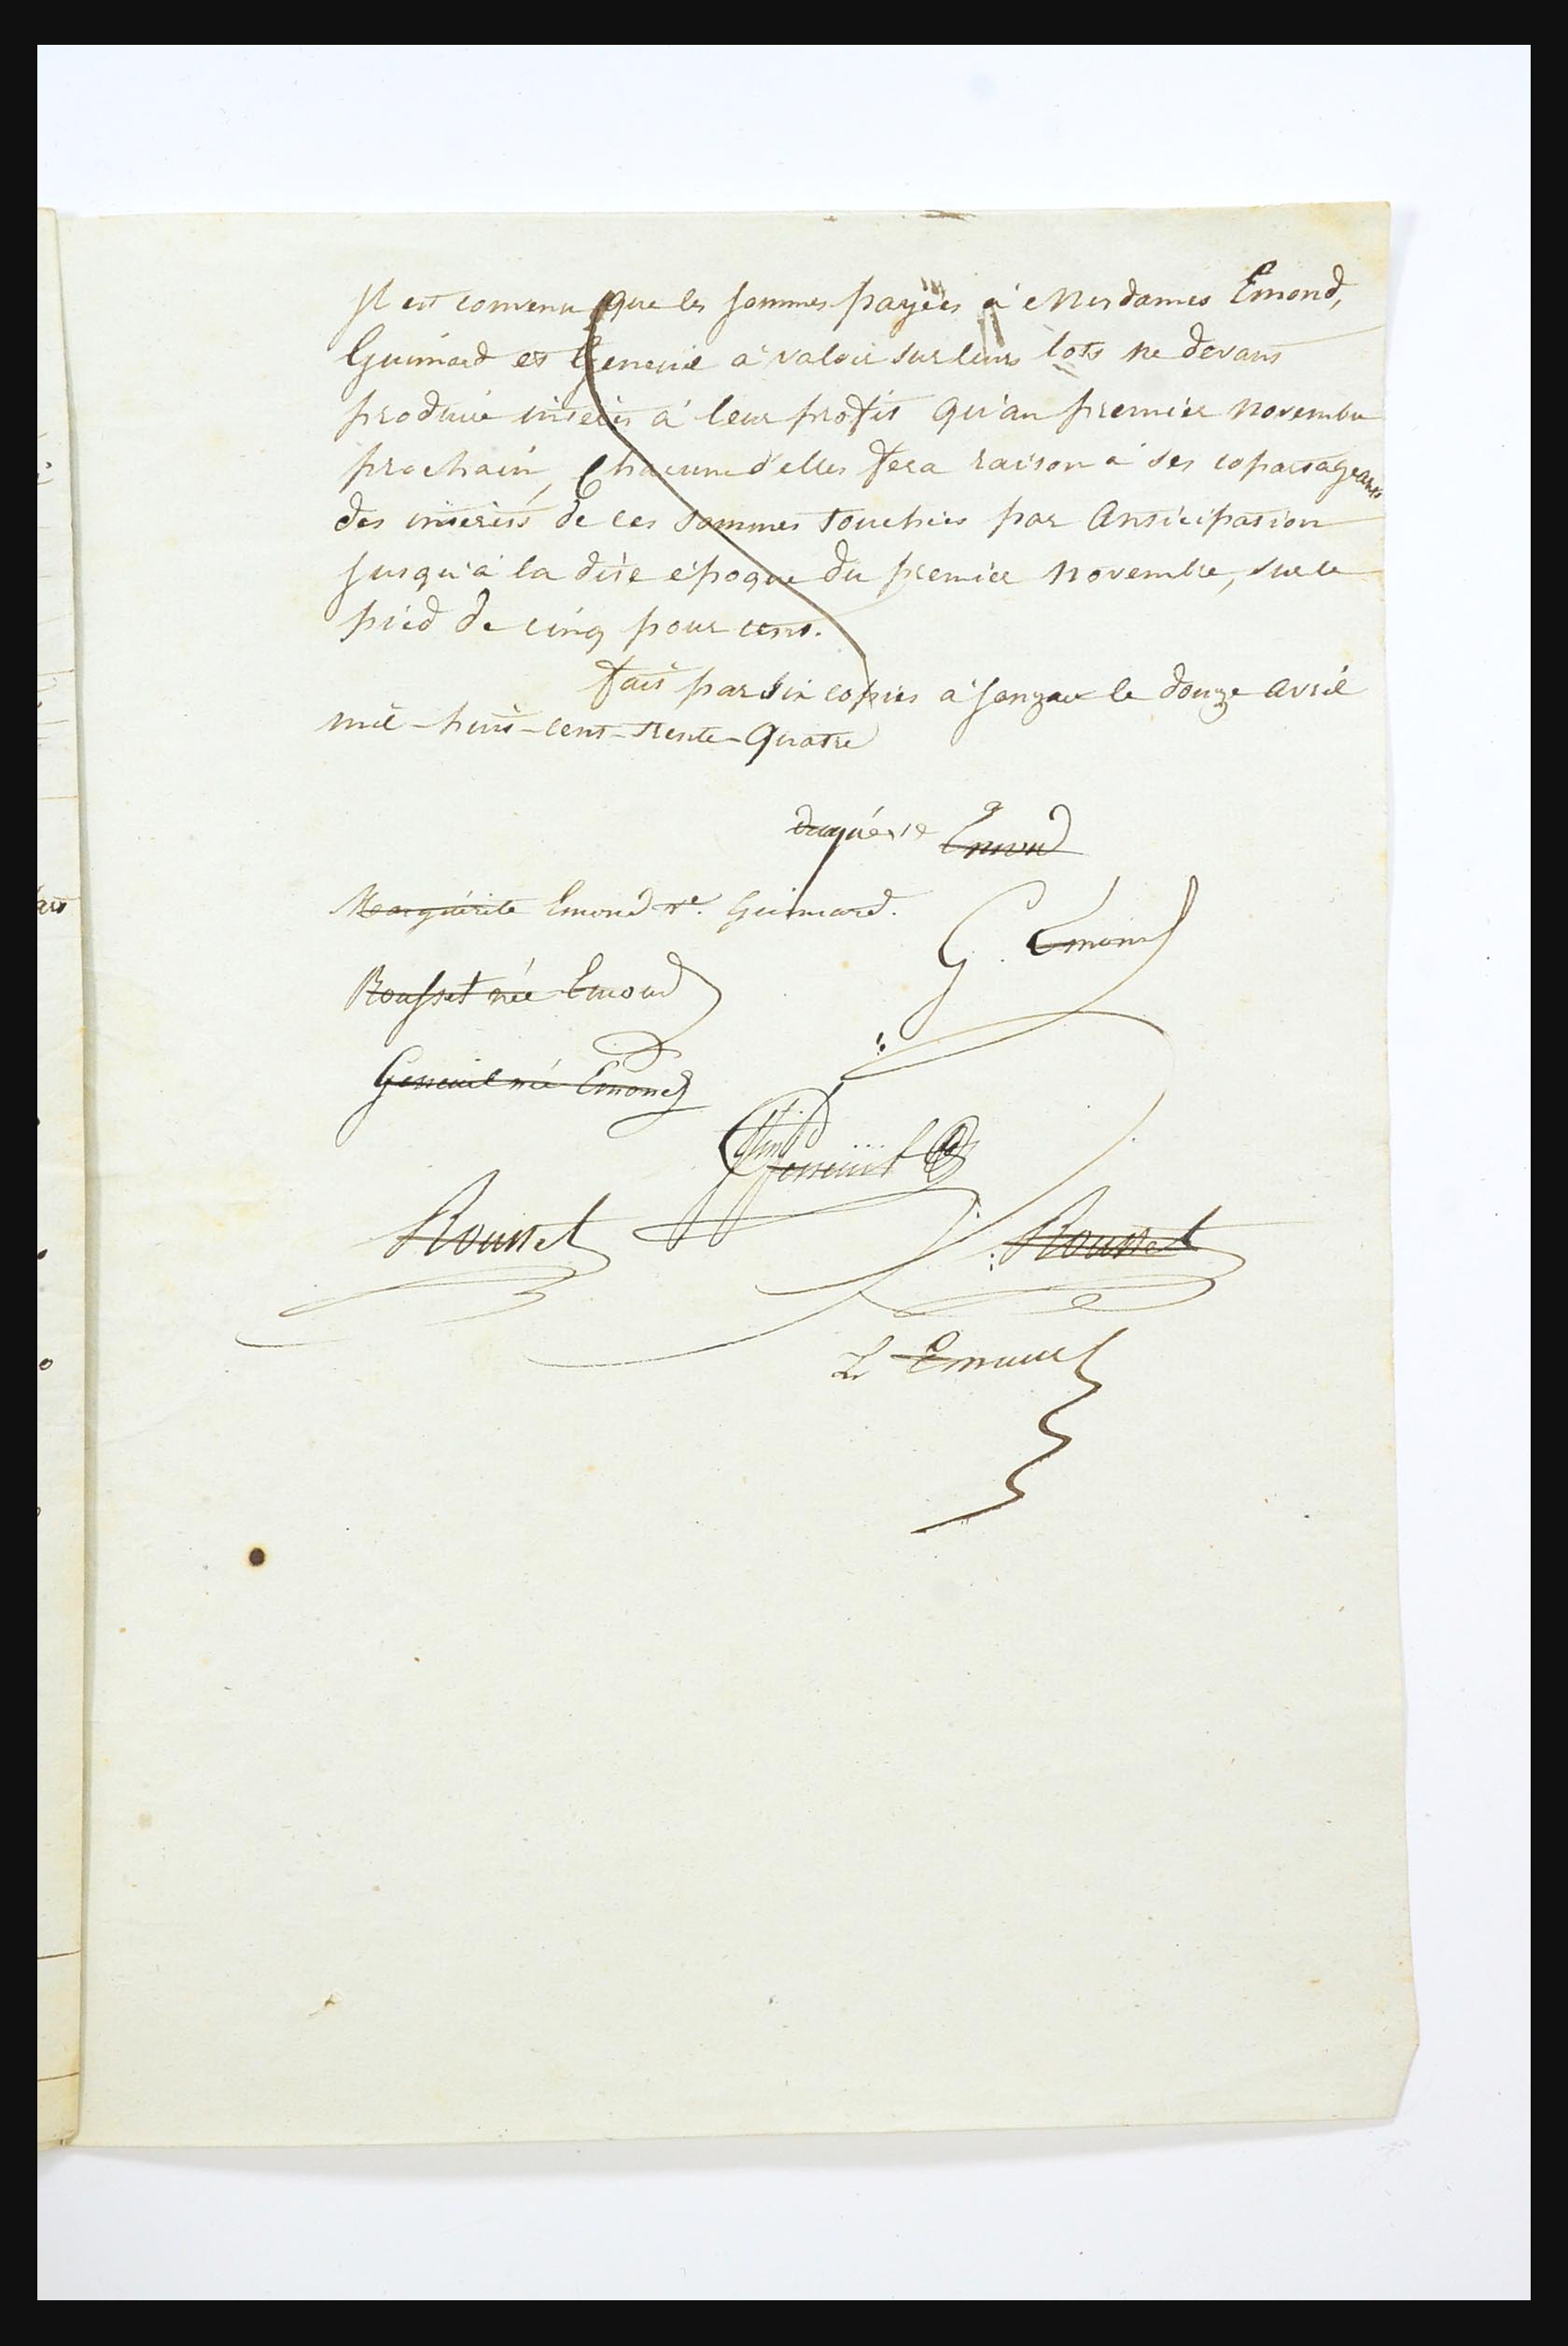 Il est convenu que les sommes payées à Mesdames Emond,
Guimard et Geneuil à valoir sur leurs lots ne devant
produire intérêts à leur profit qu'au premier novembre
prochain, Chacune d'elles fera raison à ses copartageants
des intérêts de ces sommes touchées par anticipation
jusqu'à la dite époque du premier novembre, sur le
pied de cinq pour cent.
fait par six copies à Jonzac le douze avril
mil-huit-cent-trente-quatre
Emond
Marguérite Emond ve. Guimard.
G. Emond
Rousset née Emond
Geneuil née Emond
Geneuil
Rousset
Rousset